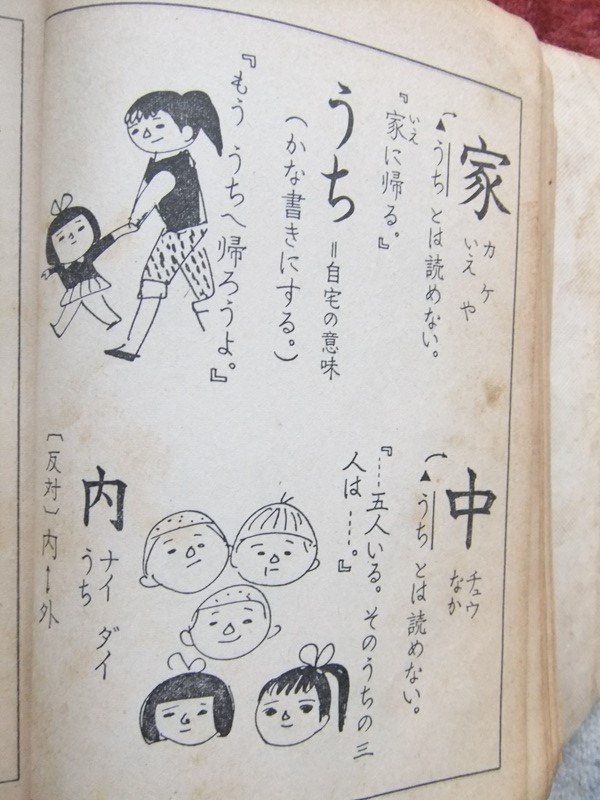 家 カ ケ
いえ や
（▲うち とは読めない。
『家（いえ）に帰る。』
うち ＝自宅の意味
（かな書きにする。）
『もう うちへ帰ろうよ。』
中 チュウ
なか
（▲うち とは読めない。
『……五人いる。そのうちの三
人は……。』
内 ナイ ダイ
うち
〔反対〕内↔外